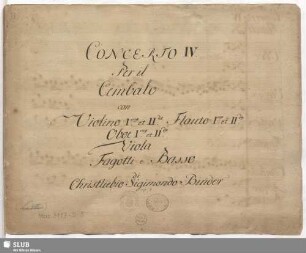 CONCERTO IV
Per il
Cimbalo
con
Violino Imo et IIdo Flauto Imo et IIdo
Oboi Imo et IIdo
Viola
Fagotti e Basso
di
Christliebio Sigimondo Binder
SLUB